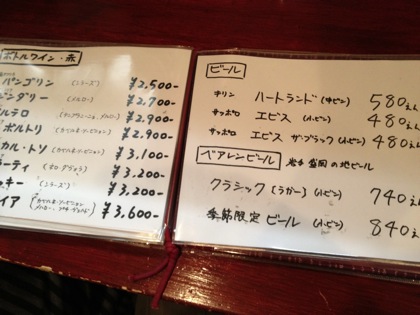 ボトルワイン・赤
パンゴリン (シラーズ) ¥2,500-
ンダリー (メルロー) ¥2,700-
ルテロ ¥2,900-
ボルトリ (カベルネ・ソーヴィニョン) ¥2,900-
カル・トソ (カベルネ・ソーヴィニョン) ¥3,100-
ーティ ¥3,200-
ッキー (シラーズ) ¥3,200-
イア ¥3,600-
ビール
キリン ハートランド (中ビン) 580えん
サッポロ エビス (小ビン) 480えん
サッポロ エビス ザ・ブラック (小ビン) 480えん
ベアレンビール 岩手 盛岡の地ビール
クラシック [ラガー] (小ビン) 740えん
季節限定 ビール (小ビン) 840えん